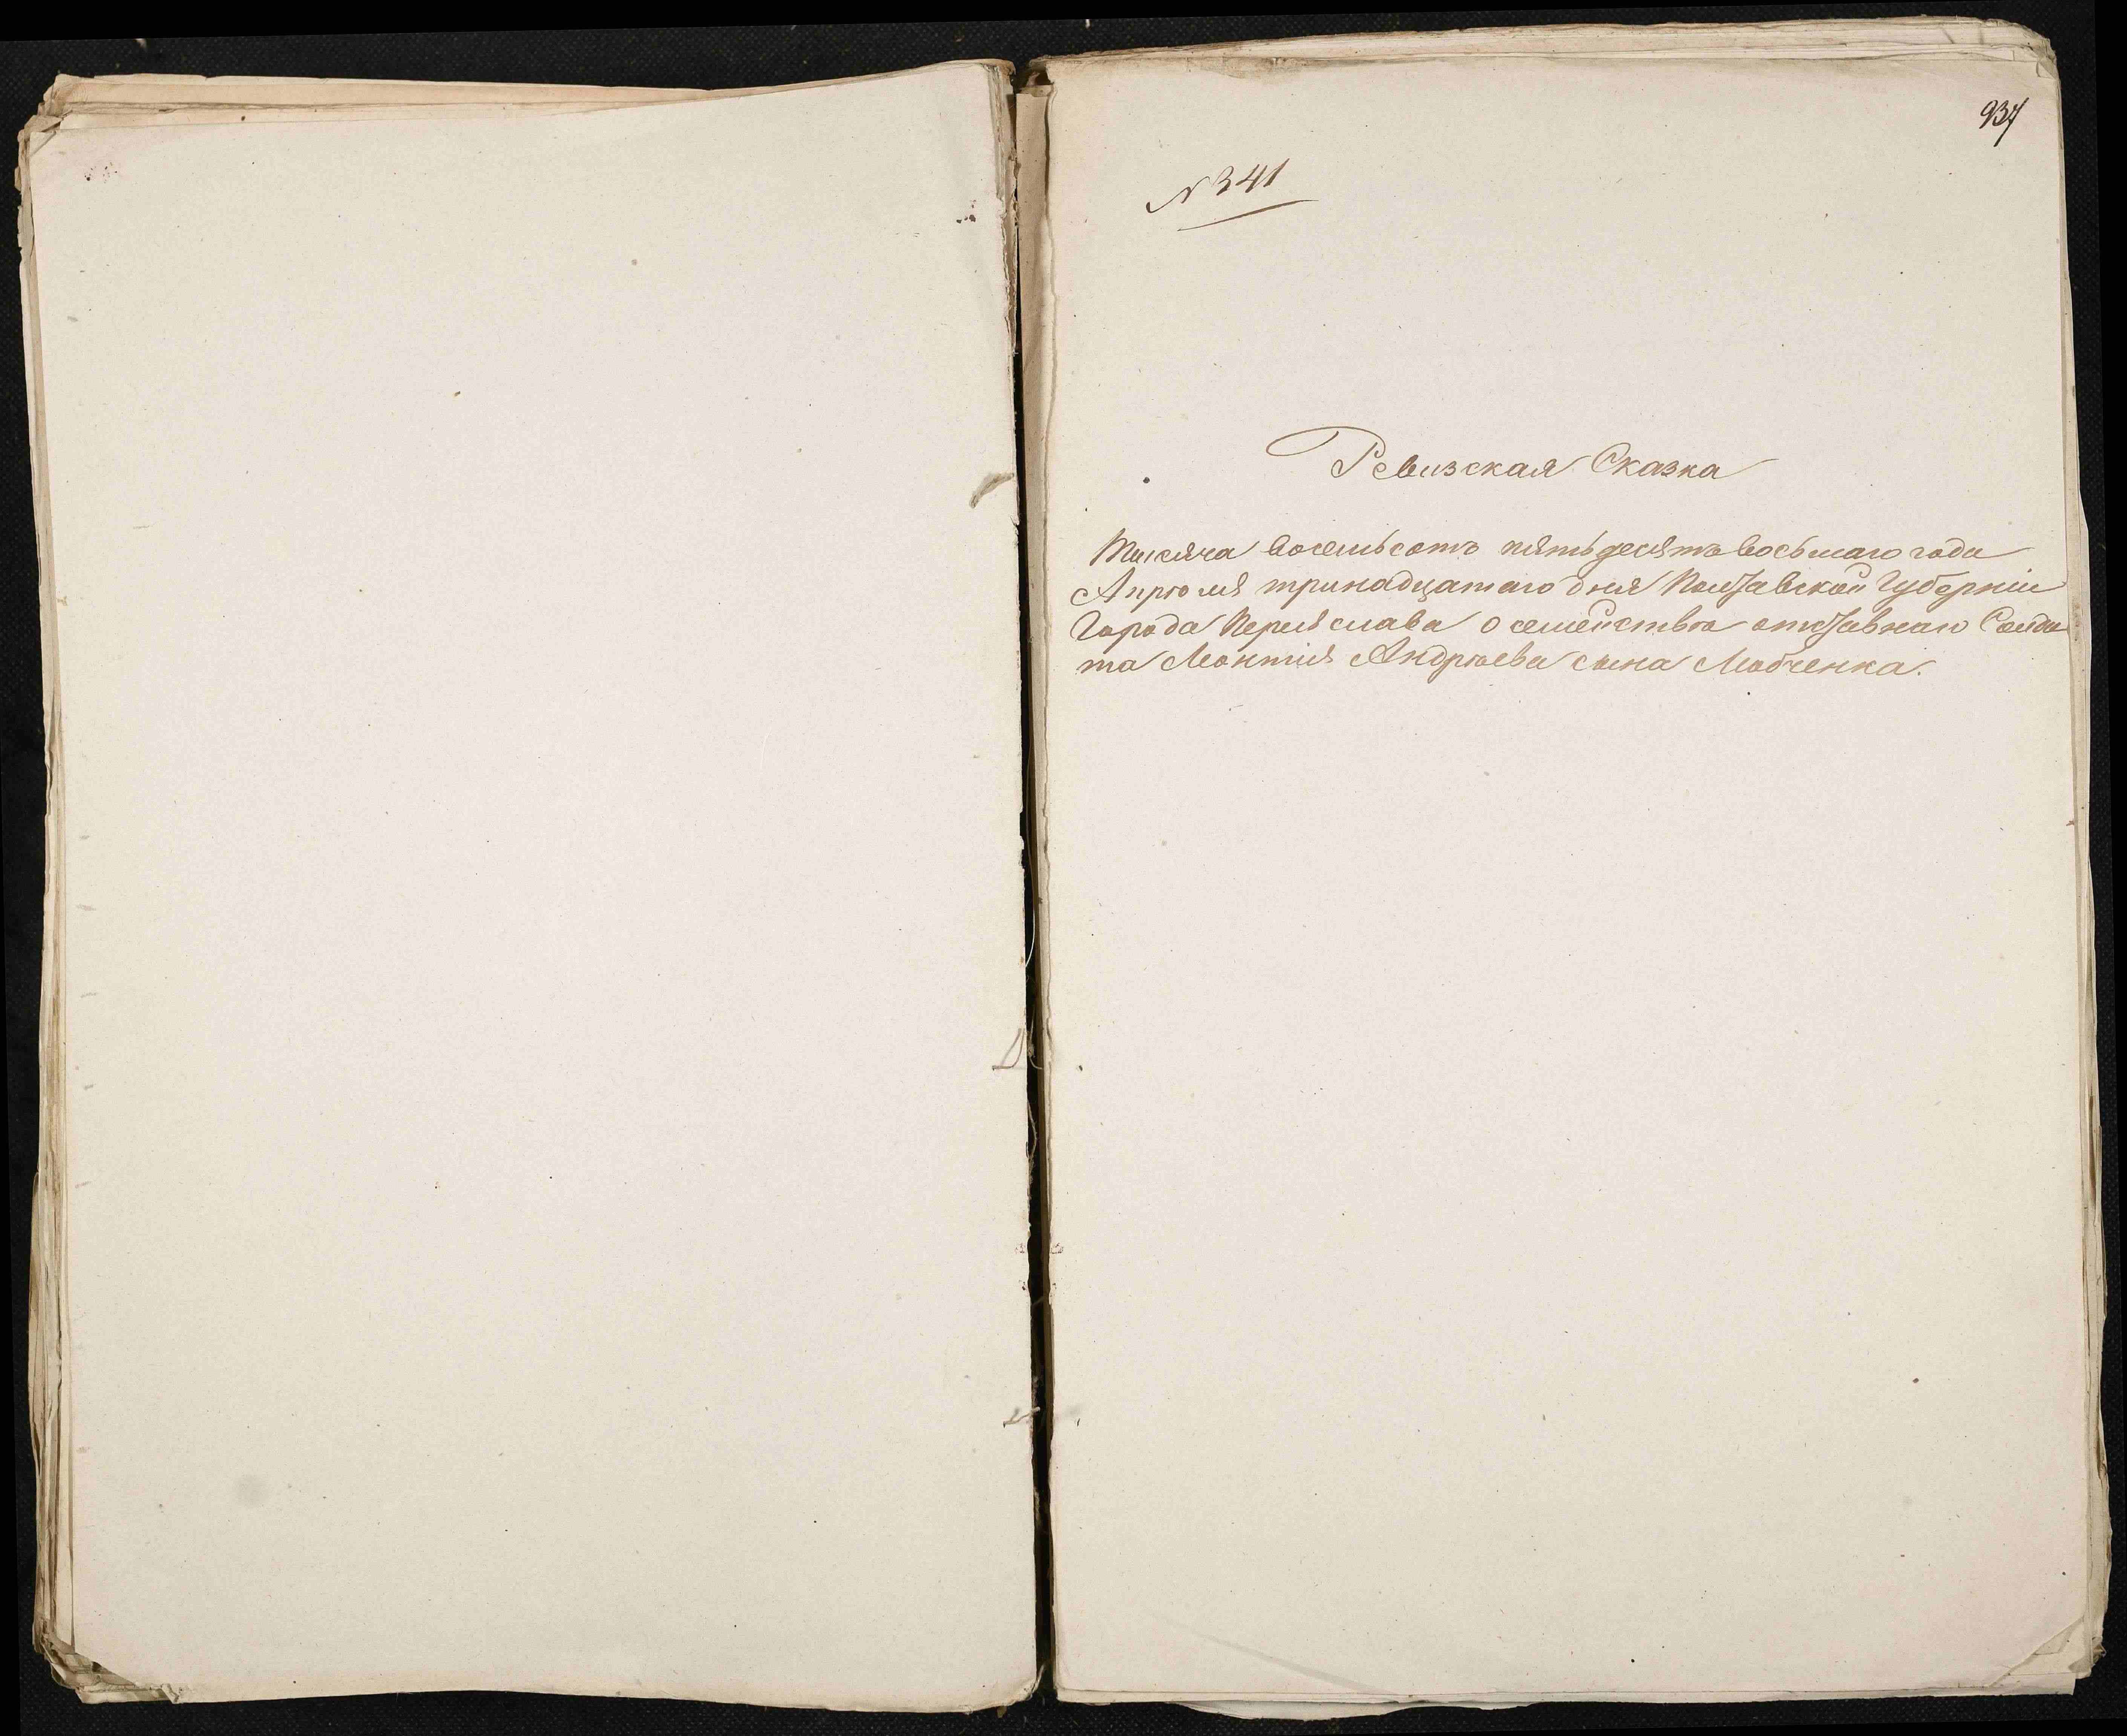 937
N 341
Ревизская Сказка
Тысяча восемьсотъ пятьдесятъ восьмаго года
Апрѣля тринадцатаго дня Полтавской Губерніи
Города Переяслава о семействѣ отставнаго Солда
та Леонтія Андрѣева сына